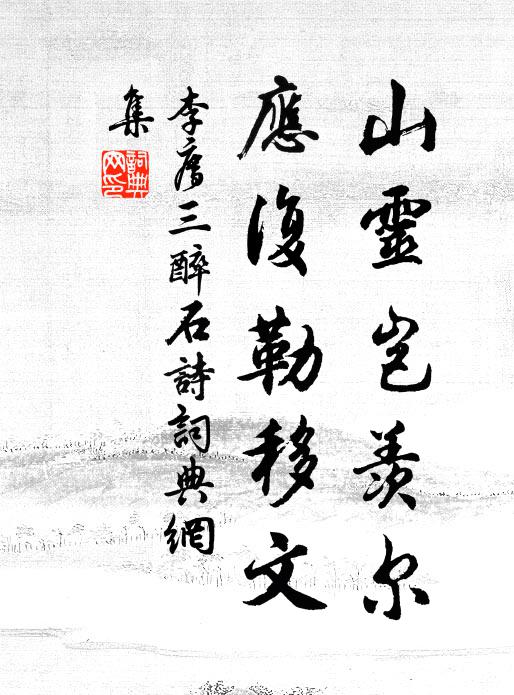 山靈豈羨尔
應復勒移文
李廌三醉石詩詞典網
集
詞典
网印